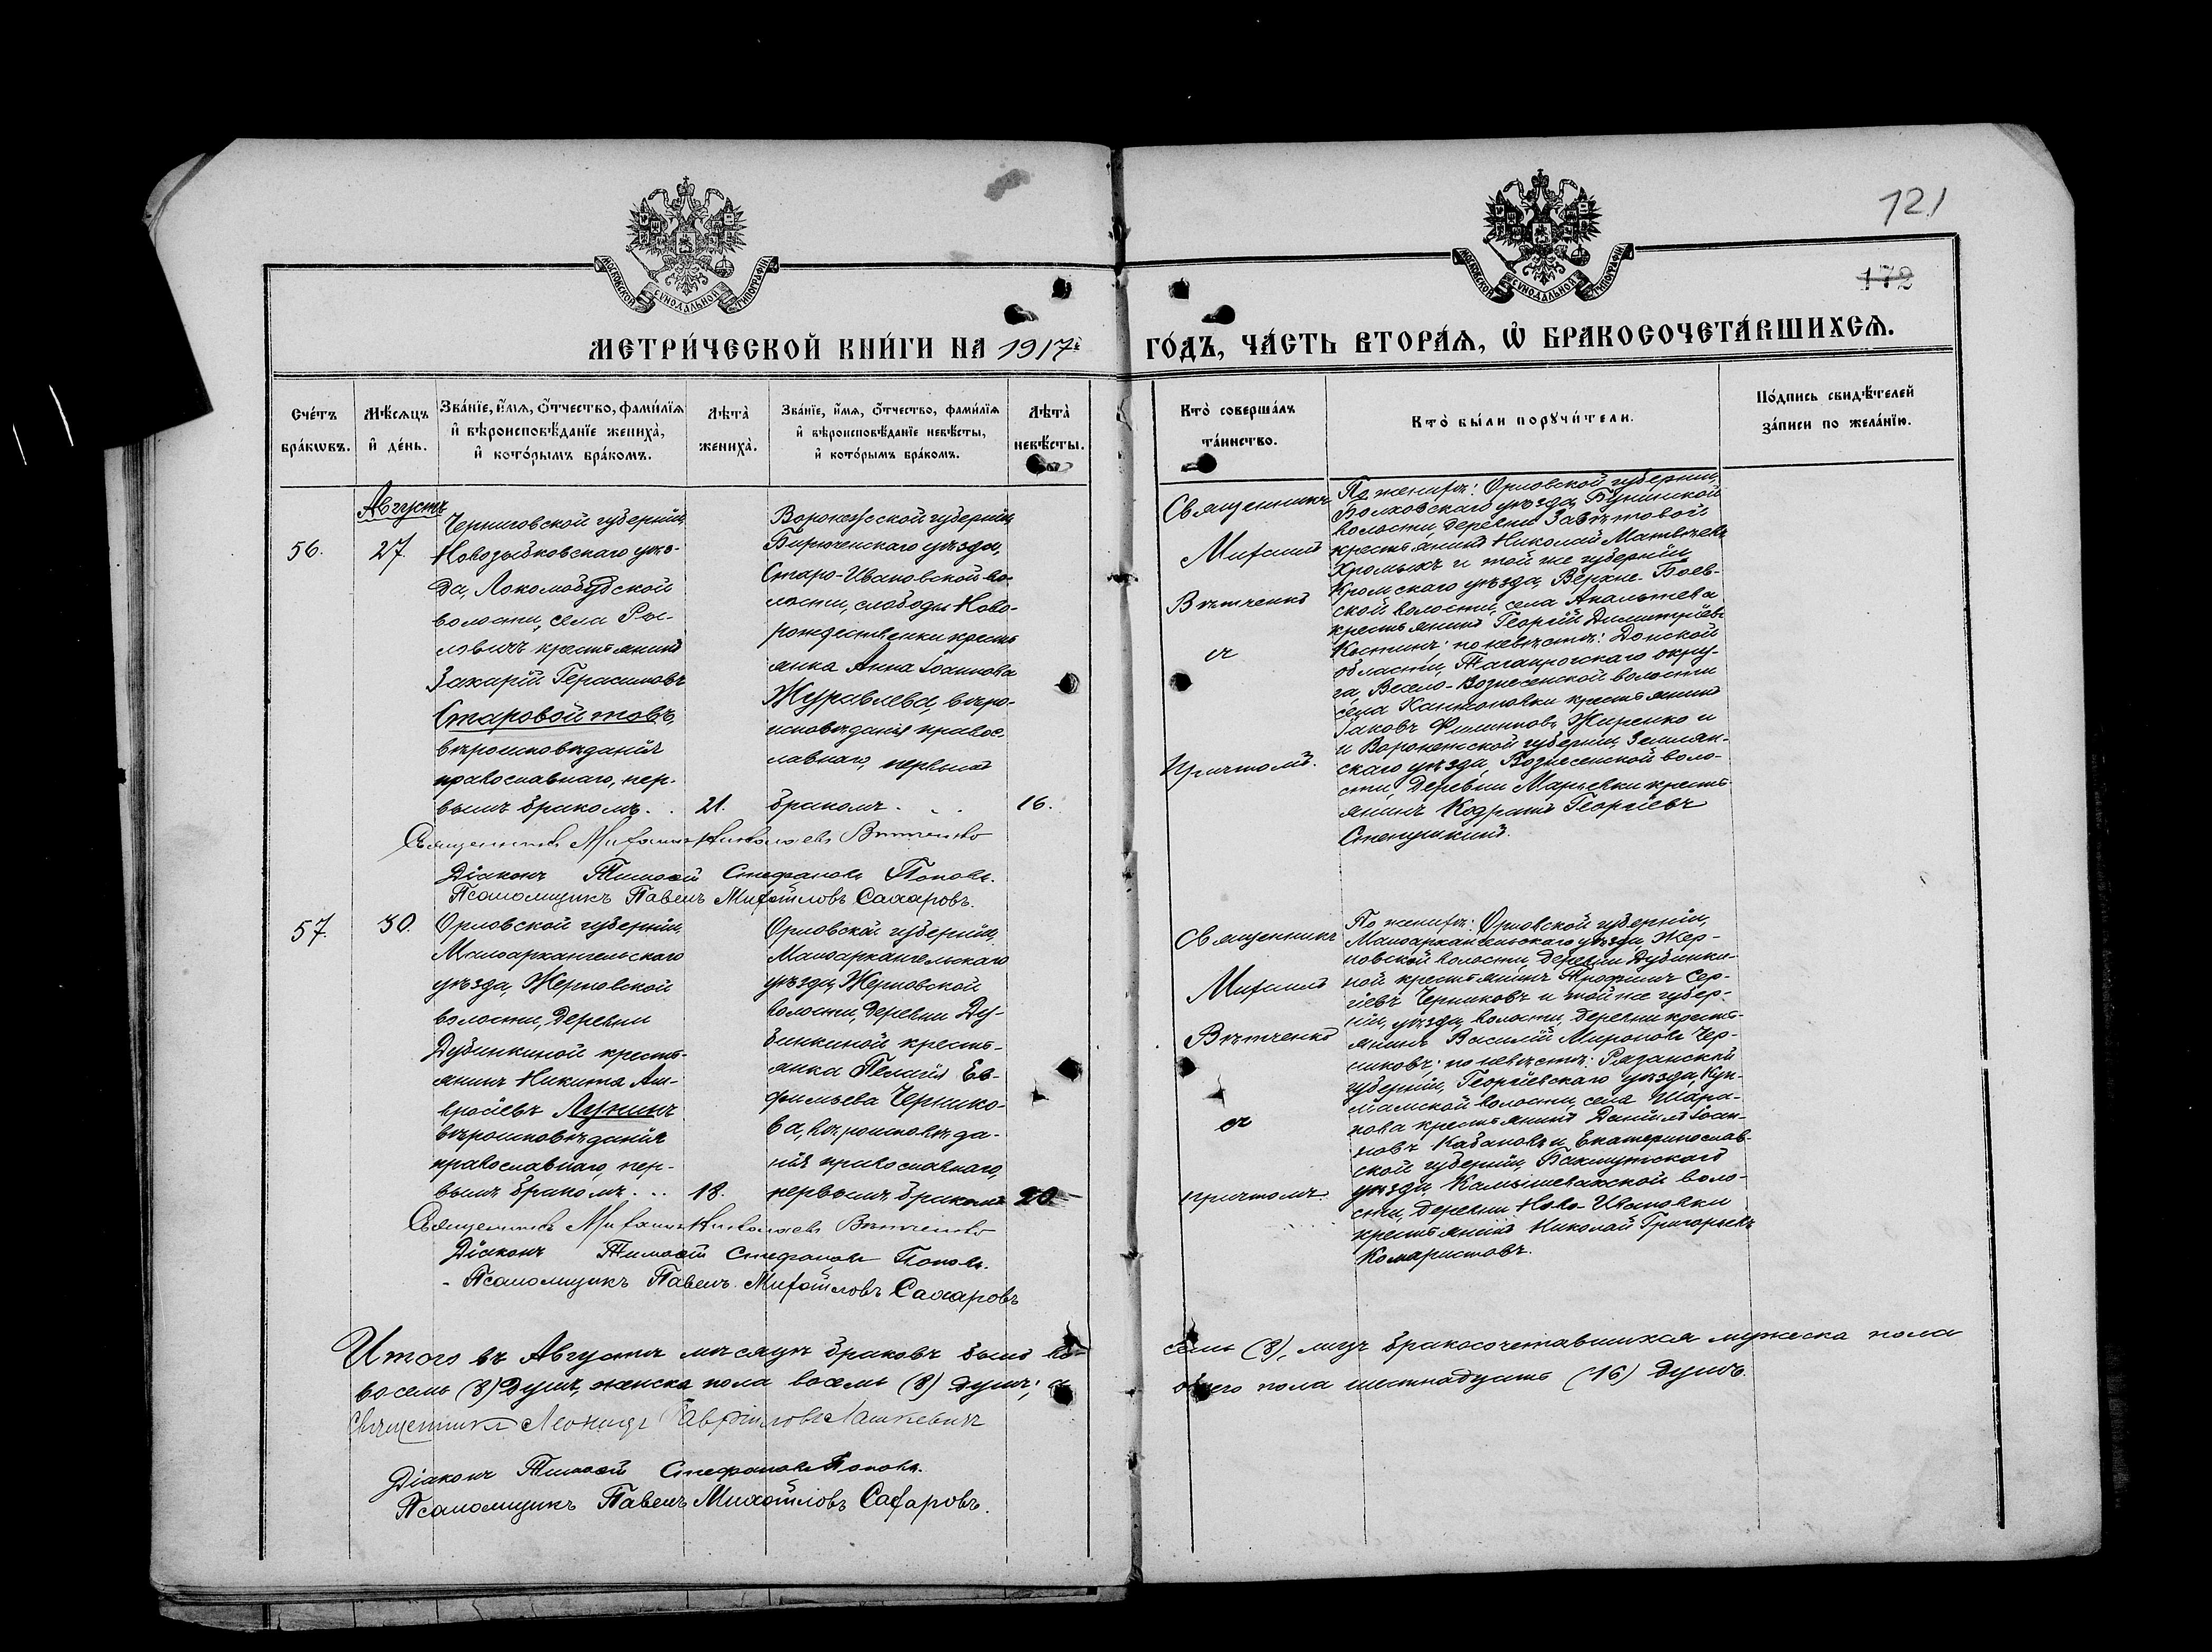 МОСКОВСКОЙ СѴНОДАЛЬНОЙ ТИПОГРАФІИ
МОСКОВСКОЙ СѴНОДАЛЬНОЙ ТИПОГРАФІИ
121
172
МЕТРИ́ЧЕСКОЙ КНИ́ГИ НА 1917й ГО́ДЪ, ЧА́СТЬ ВТОРА́Ѧ, Ѽ БРАКОСОЧЕТА́ВШИХСѦ.
Сче́тъ бра́кѡвъ.
Мѣ́сяцъ и҆ де́нь.
Зва́нїе, и҆́мѧ, ѻ҆́тчество, фами́лїѧ
и҆ вѣроисповѣ́данїе жениха̀,
и҆ кото́рымъ бра́комъ.
Лѣта̀ жениха̀.
Зва́нїе, и҆́мѧ, ѻ҆́тчество, фами́лїѧ
и҆ вѣроисповѣ́данїе невѣ́сты,
и҆ кото́рымъ бра́комъ.
Лѣта̀ невѣ́сты.
Кто̀ соверша́лъ та́инство.
Кто̀ бы́ли порꙋчи́тели.
По́дпись свидѣ́телей за́писи по жела́нїю.
Августъ
56.
27.
Черниговской губерніи,
Новозыбковскаго уѣз-
да,
волости, села Рыс-
ловичъ крестьянинъ
Захарій Герасимовъ
Старовойтовъ,
вѣроисповѣданія
православнаго, пер-
вымъ бракомъ. .
21.
Воронежской губерніи,
Бирюченскаго уѣзда,
Старо-Ивановской во-
лости, слободы Ново-
рождественки кресть
янка Анна Іоаннова
Журавлева, вѣро-
исповѣданія правос-
лавнаго, первымъ
бракомъ. .
16.
Священникъ
Михаилъ
Вѣтченко
съ
Причтомъ.
По женихѣ: Орловской губерніи,
Болховскаго уѣзда, Бунинской
волости, деревни
крестьянинъ Николай Матвѣевъ
Хромыхъ и той же губерніи,
Кромскаго уѣзда, Верхне-Боев-
ской волости, села
крестьянинъ Георгій Димитріевъ
Костинъ; по невѣстѣ: Донской
области, Таганрогскаго окру-
га, Весело-Вознесенской волости
села крестьянинъ
Іаковъ Филипповъ Жиренко и
и Воронежской губерніи, Землян-
скаго уѣзда, Вознесенской воло-
сти, деревни Марьевки кресть
янинъ Кодратъ Георгіевъ
Священникъ Михаилъ Николаевъ Вѣтченко
Діаконъ Тимоѳей Стефановъ Поповъ.
Псаломщикъ Павелъ Михайловъ Сахаровъ.
57.
30.
Орловской губерніи,
Малоархангельскаго
уѣзда, Жерновской
волости, деревни
Дубинкиной кресть-
янинъ Никита Ам-
вросіевъ Лунинъ
вѣроисповѣданія
православнаго, пер-
вымъ бракомъ. . .
18.
Орловской губерніи,
Малоархангельскаго
уѣзда, Жерновской
волости, деревни Ду-
бинкиной кресть-
янка Пелагія Ев-
фимьева Чернико-
ва, вѣроисповѣда-
нія православнаго,
первымъ бракомъ
20
Священникъ
Михаилъ
Вѣтченко
съ
причтомъ.
По женихѣ: Орловской губерніи,
Малоархангельскаго уѣзда, Жер-
новской волости, деревни Дубинки-
ной крестьянинъ Трофимъ Сер-
гіевъ Черниковъ и той же губер-
ніи, уѣзда, волости, деревни кресть-
янинъ Василій Мироновъ Чер-
никовъ; по невѣстѣ: Рязанской
губерніи, Георгіевскаго уѣзда,
волости, села Шара-
пова крестьянинъ Даніилъ Іоан-
новъ Кабановъ и Екатеринослав-
ской губерніи, Бахмутскаго
уѣзда, Камышевахской воло-
сти, деревни Ново-Ивановки
крестьянинъ Николай Григорьевъ
Комаристовъ.
Священникъ Михаилъ Николаевъ Вѣтченко
Діаконъ Тимоѳей Стефановъ Поповъ.
Псаломщикъ Павелъ Михайловъ Сахаровъ
Итого въ Августѣ мѣсяцѣ браковъ было во- семь (8), лицъ бракосочетавшихся мужеска пола
восемь (8) душъ, женска пола восемь (8) душъ; а обоего пола шестнадцать (16) душъ.
Священникъ Леонидъ Гавріиловъ Лашкевичъ
Діаконъ Тимоѳей Стефановъ Поповъ.
Псаломщикъ Павелъ Михайловъ Сахаровъ.